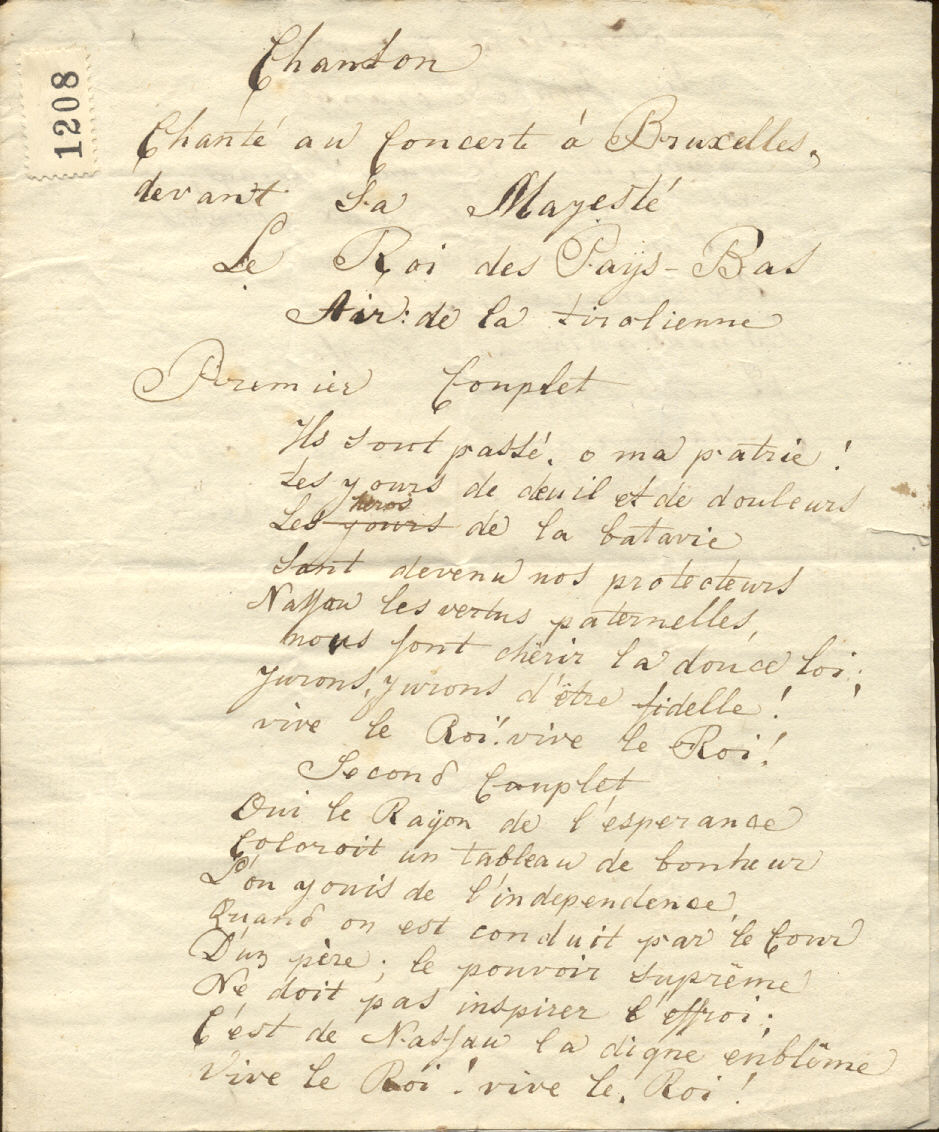 1208
Chanson
Chanté au Concert à Bruxelles,
devant Sa Mayesté
Le Roi des Pays-Bas
Air: de la tirolienne
Premier Couplet
Ils sont passé, o ma patrie !
Les yours de deuil et de douleurs
heros
Les yours de la batavie
Sont devenu nos protecteurs
Nassau les vertus paternelles,
nous font chérir la douce loi;
Jurons, jurons d'être fidelle !
vive le Roi! vive le Roi!
Second Couplet
Oui le Rayon de l'esperance
Coloroit un tableau de bonheur
L'on youis de l'independence
Quand on est conduit par le Cour
D'un père; le pouvoir suprême
Ne doit pas inspirer l'effroi;
C'est de Nassau la digne enblême
Vive le Roi! vive le Roi!